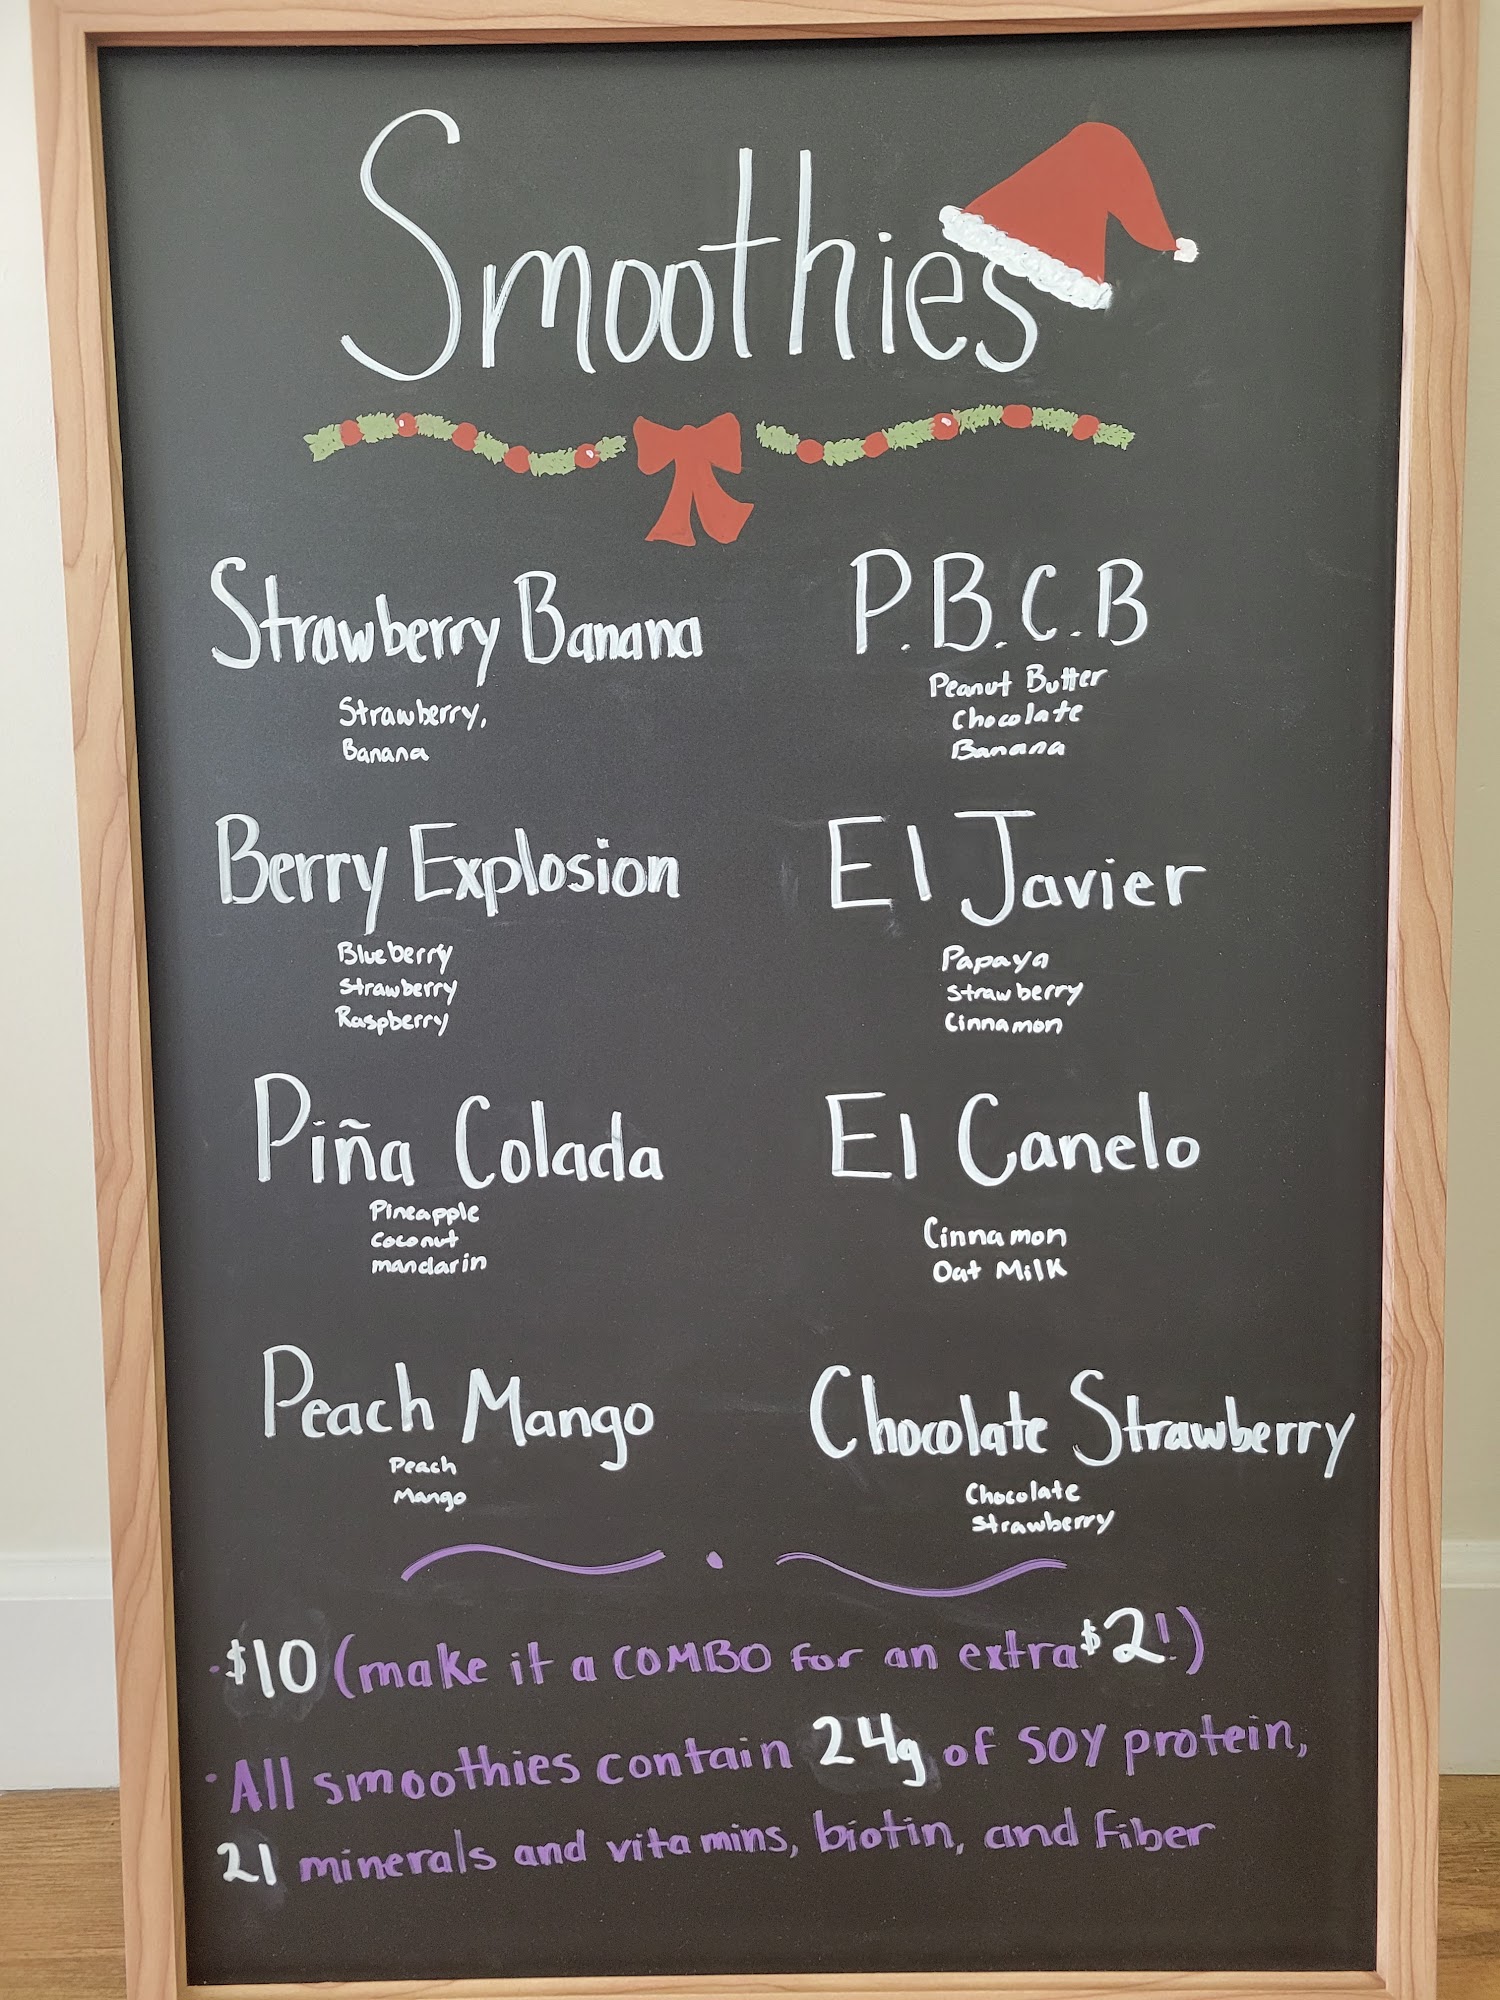 Smoothies
Strawberry Banana
Strawberry,
Banana
Berry Explosion
Blueberry
Strawberry
Raspberry
Piña Colada
Pineapple
Coconut
mandarin
Peach Mango
Peach
Mango
P.B.C.B
Peanut Butter
Chocolate
Banana
El Javier
Papaya
Strawberry
Cinnamon
El Canelo
Cinnamon
Oat Milk
Chocolate Strawberry
Chocolate
Strawberry
·$10 (make it a COMBO for an extra $2!)
·All smoothies contain 24g of SOY protein,
21 minerals and vitamins, biotin, and Fiber